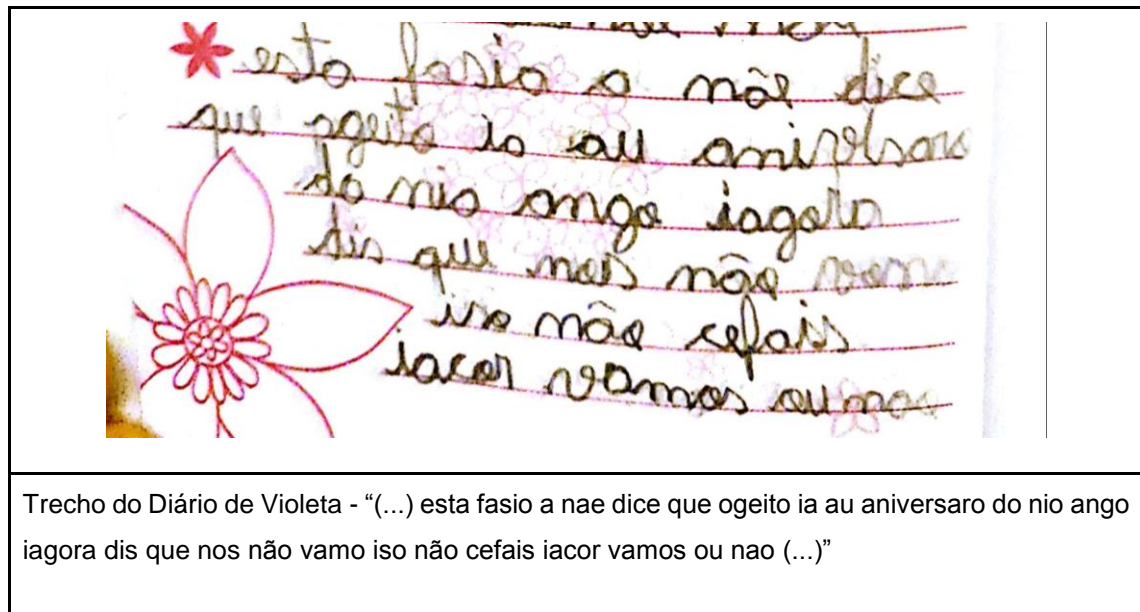 esta fasio a mãe dice
que ogeito ia au aniversaro
do mio ango iagora
dis que nos não vamo
iso não cefais
iacor vamos ou nao
Trecho do Diário de Violeta - “(...) esta fasio a nae dice que ogeito ia au aniversaro do nio ango
iagora dis que nos não vamo iso não cefais iacor vamos ou nao (...)”